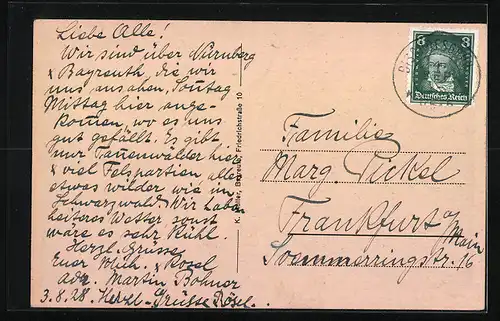 Liebe Alle!
Wir sind über Nürnberg
& Bayreuth, die wir
uns ansahen, Sonntag
Mittag hier ange-
kommen, wo es uns
gut gefällt. Es gibt
nur Tannenwälder hier
& viel Felspartien, alles
etwas wilder wie im
Schwarzwald. Wir haben
heiteres Wetter sonst
wäre es sehr kühl.
Herzl. Grüsse
Euer & Rosel
adr. Martin Bohner
3.8.28. Herzl. Grüsse Rösel.
Friedrichstraße 10
3 3
Deutsches Reich
Familie
Marg. Pickel
Frankfurt a/
Main
Soemmerringstr. 16